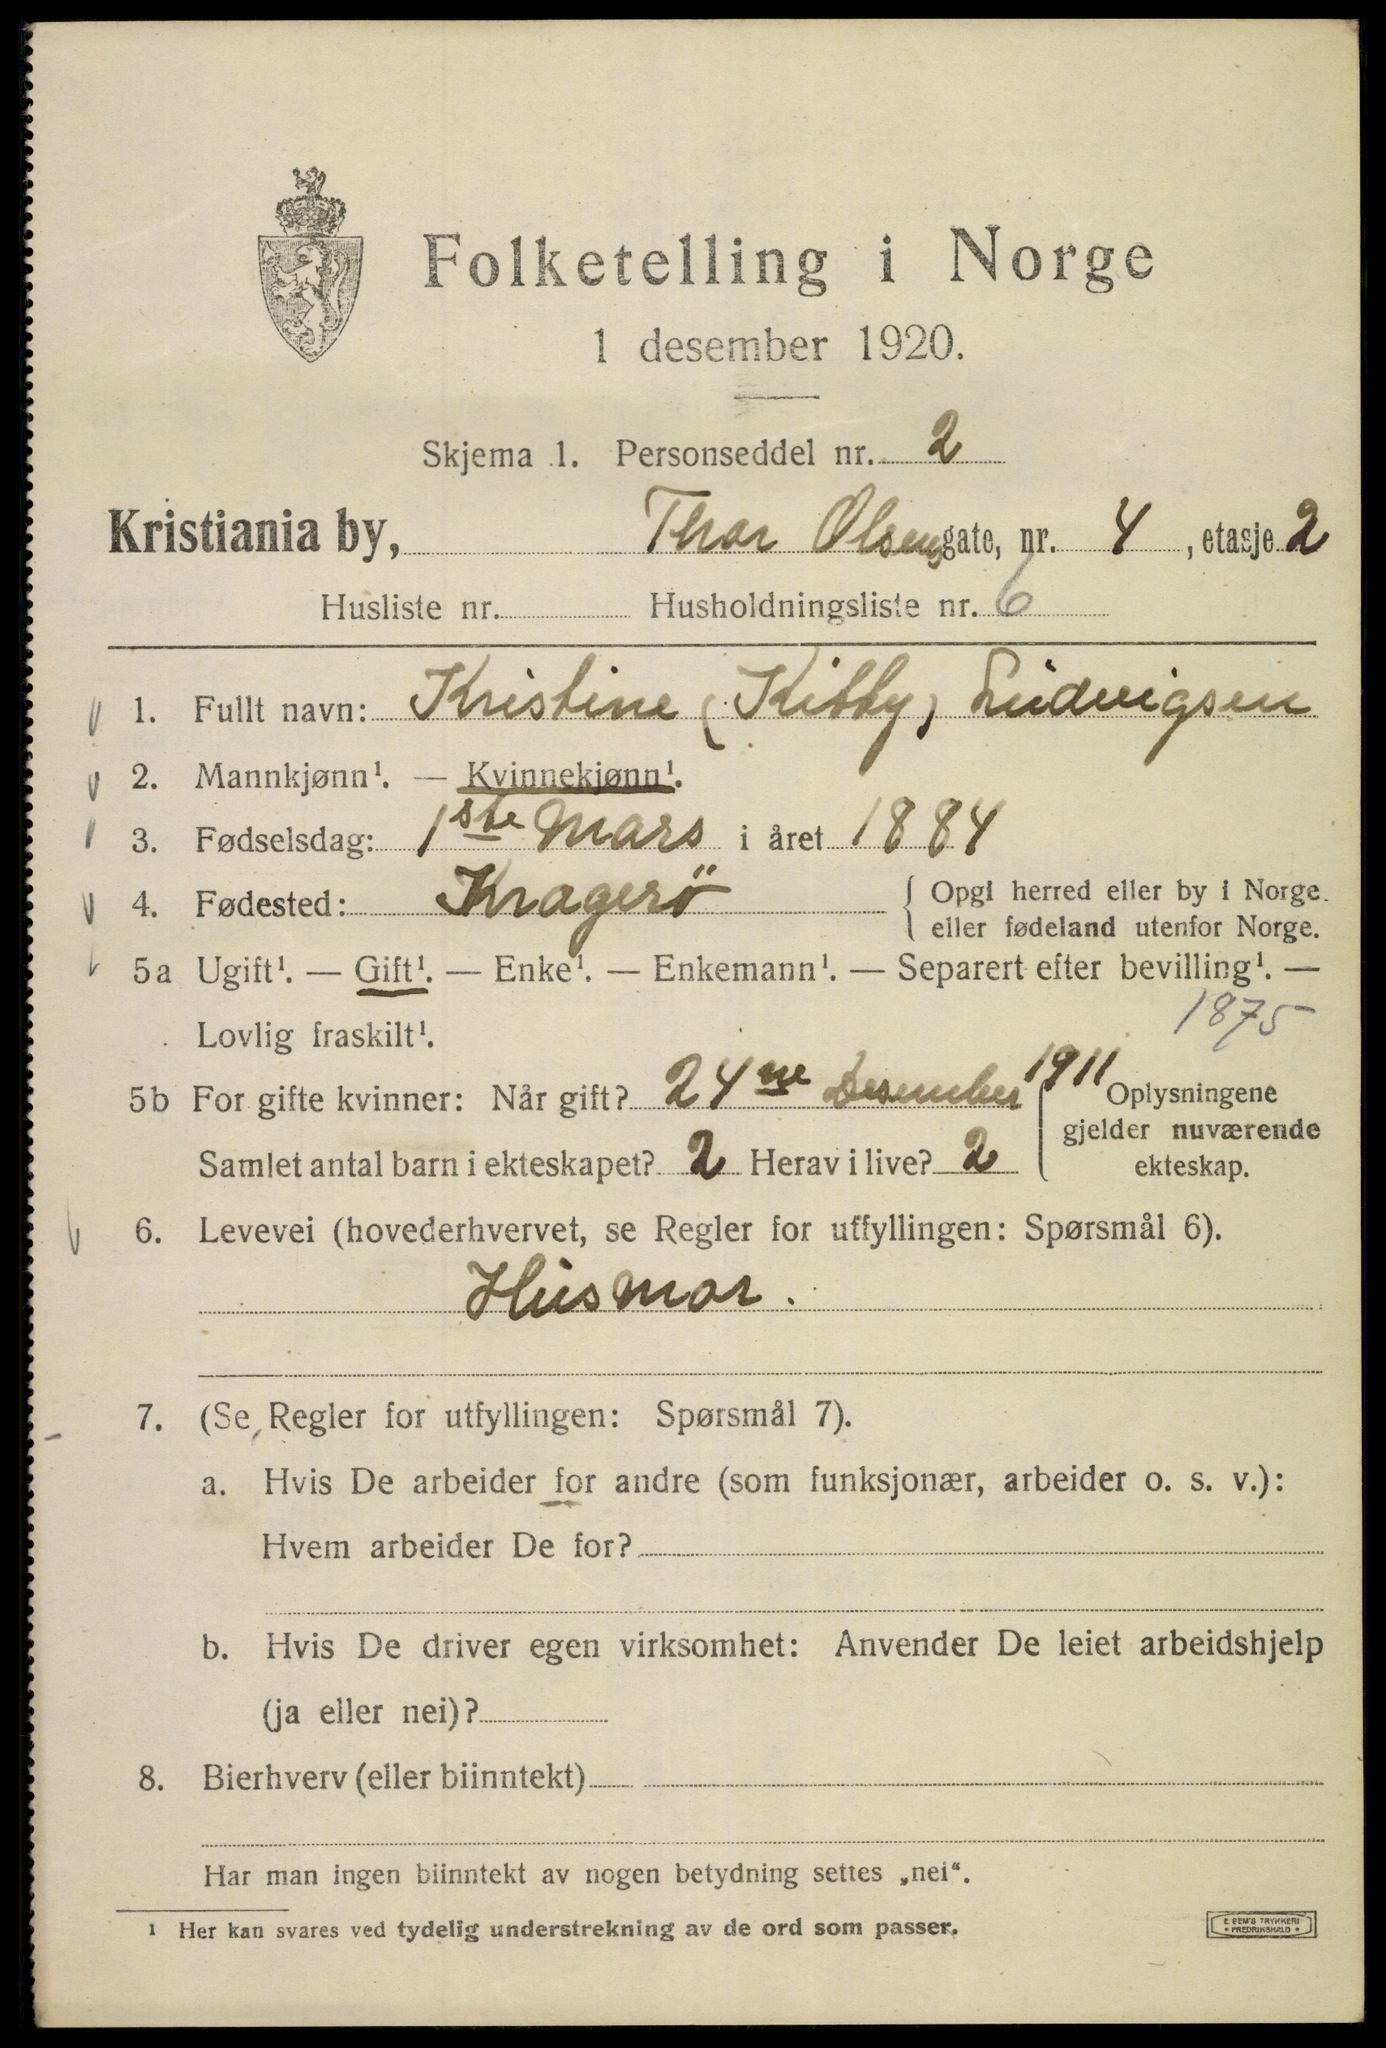 Folketelling i Norge
1 desember 1920.
Skjema 1. Personseddel nr. 2
Kristiania by, Thor Olsens gate, nr. 4, etasje 2
Husliste nr. Husholdningsliste nr. 6
1. Fullt navn: Kristine (Kitty) Ludvigsen
2. Mannkjønn¹. — Kvinnekjønn¹.
3. Fødselsdag: 1ste Mars i året 1884
4. Fødested: Kragerö { Opgi herred eller by i Norge.
eller fødeland utenfor Norge.
5a Ugift¹. — Gift¹. — Enke¹. — Enkemann¹. — Separert efter bevilling¹. —
Lovlig fraskilt¹. 1875
5b For gifte kvinner: Når gift? 24ne Desember 1911 Oplysningene
gjelder nuværende
Samlet antal barn i ekteskapet? 2 Herav i live? 2 ekteskap.
6. Levevei (hovederhvervet, se Regler for utfyllingen: Spørsmål 6).
Husmor.
7. (Se Regler for utfyllingen: Spørsmål 7).
a. Hvis De arbeider for andre (som funksjonær, arbeider o. s. v.):
Hvem arbeider De for?
b. Hvis De driver egen virksomhet: Anvender De leiet arbeidshjelp
(ja eller nei)?
8. Bierhverv (eller biinntekt)
Har man ingen biinntekt av nogen betydning settes „nei“.
¹ Her kan svares ved tydelig understrekning av de ord som passer.
E. SEM'S TRYKKERI
• FREDRIKSHALD •